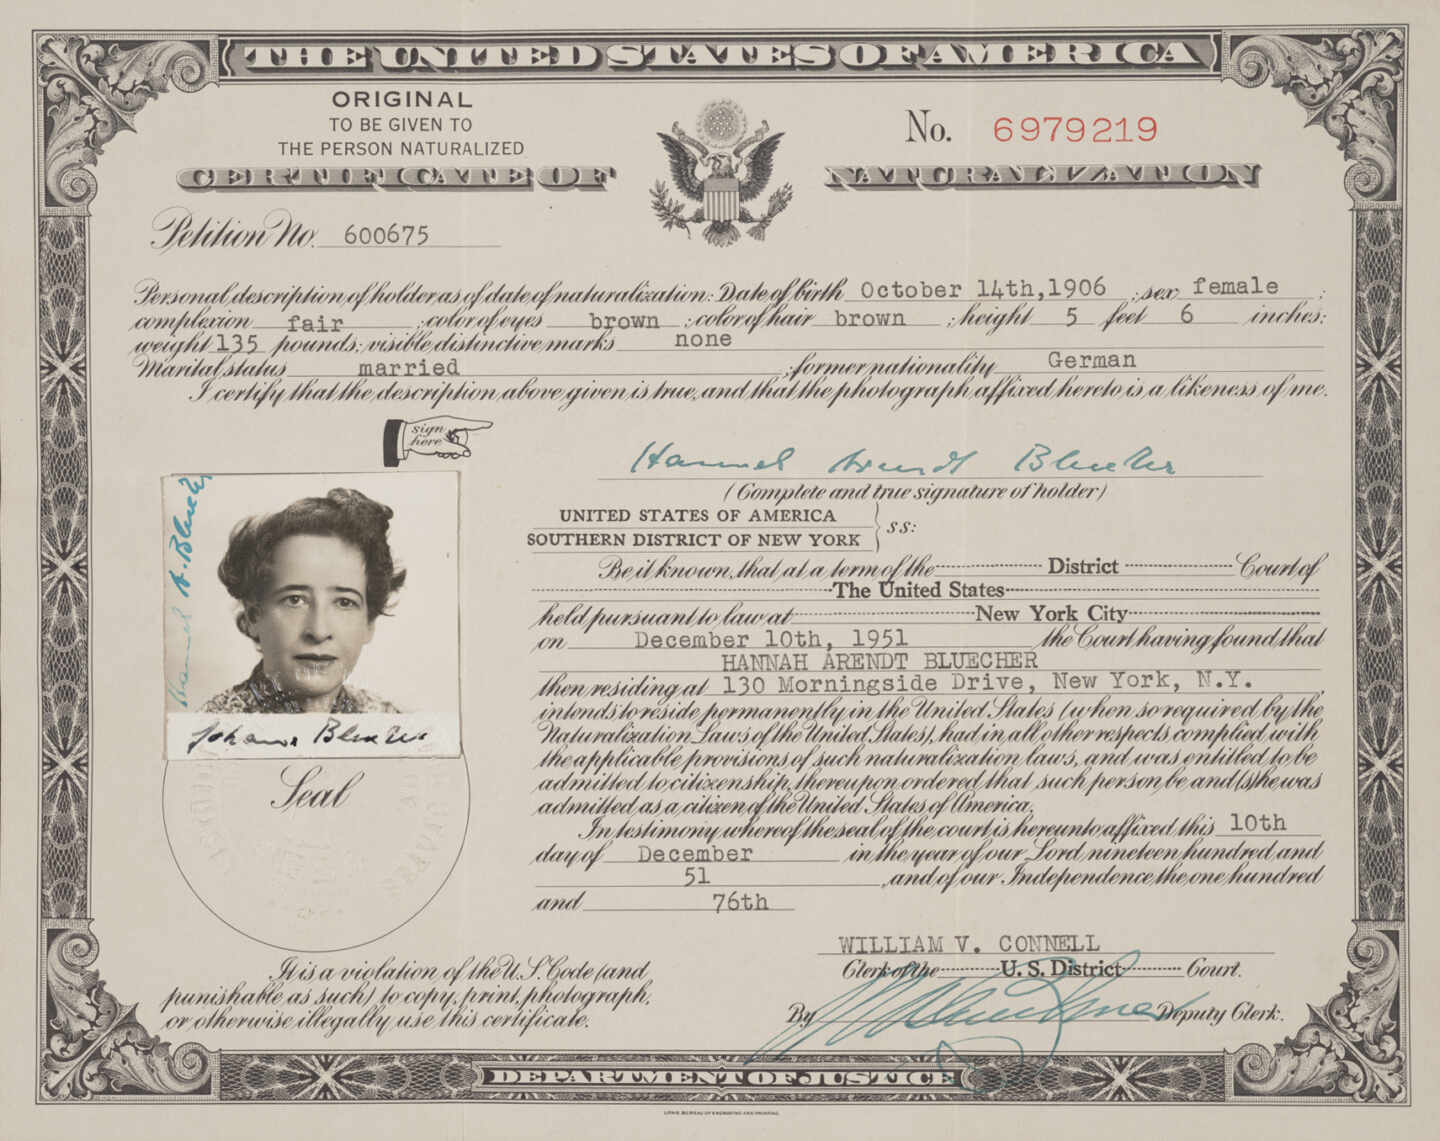 THE UNITED STATES OF AMERICA
ORIGINAL
TO BE GIVEN TO
THE PERSON NATURALIZED
No. 6979219
CERTIFICATE OF NATURALIZATION
Petition No. 600675
Personal description of holder as of date of naturalization: Date of birth October 14th, 1906 ; sex female ;
complexion fair ; color of eyes brown ; color of hair brown ; height 5 feet 6 inches;
weight 135 pounds; visible distinctive marks none
Marital status married ; former nationality German
I certify that the description above given is true, and that the photograph affixed hereto is a likeness of me.
sign
here
Hannah Arendt Bluecher
(Complete and true signature of holder)
UNITED STATES OF AMERICA
SOUTHERN DISTRICT OF NEW YORK } ss:
Be it known, that at a term of the District Court of
The United States
held pursuant to law at New York City
on December 10th, 1951 the Court having found that
HANNAH ARENDT BLUECHER
then residing at 130 Morningside Drive, New York, N.Y.
intends to reside permanently in the United States (when so required by the
Naturalization Laws of the United States), had in all other respects complied with
the applicable provisions of such naturalization laws, and was entitled to be
admitted to citizenship, thereupon ordered that such person be and (s)he was
admitted as a citizen of the United States of America.
In testimony whereof the seal of the court is hereunto affixed this 10th
day of December in the year of our Lord nineteen hundred and
51 , and of our Independence the one hundred
and 76th
WILLIAM V. CONNELL
Clerk of the U. S. District Court.
By Deputy Clerk.
Hannah A. Bluecher
Johanna Bluecher
Seal
It is a violation of the U. S. Code (and
punishable as such) to copy, print, photograph,
or otherwise illegally use this certificate.
DEPARTMENT OF JUSTICE